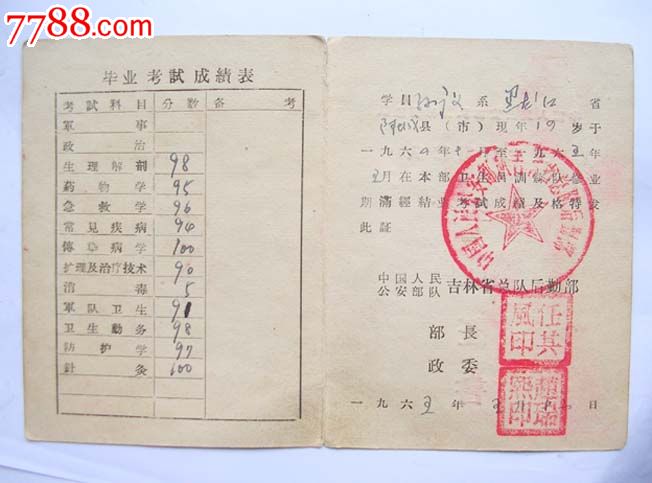 7788.com
毕业考試成績表
考試科目 分数 备考
軍事
政治
生理解剖 98
药物学 95
急救学 96
常見疾病 94
傳染病学 100
扩理及治疗技术 90
消毒 5
軍队卫生 91
卫生勤务 98
防护学 97
針灸 100
学員 系 黑龙江 省
阿城 县(市)现年19岁于
一九六四年十月至一九六五年
五月在本部卫生員訓練队修业
期滿經結业考試成績及格特发
此証
中国人民
公安部队 吉林省总队后勤部
部長
任其
風印
政委
熙印
一九六五年五月 日